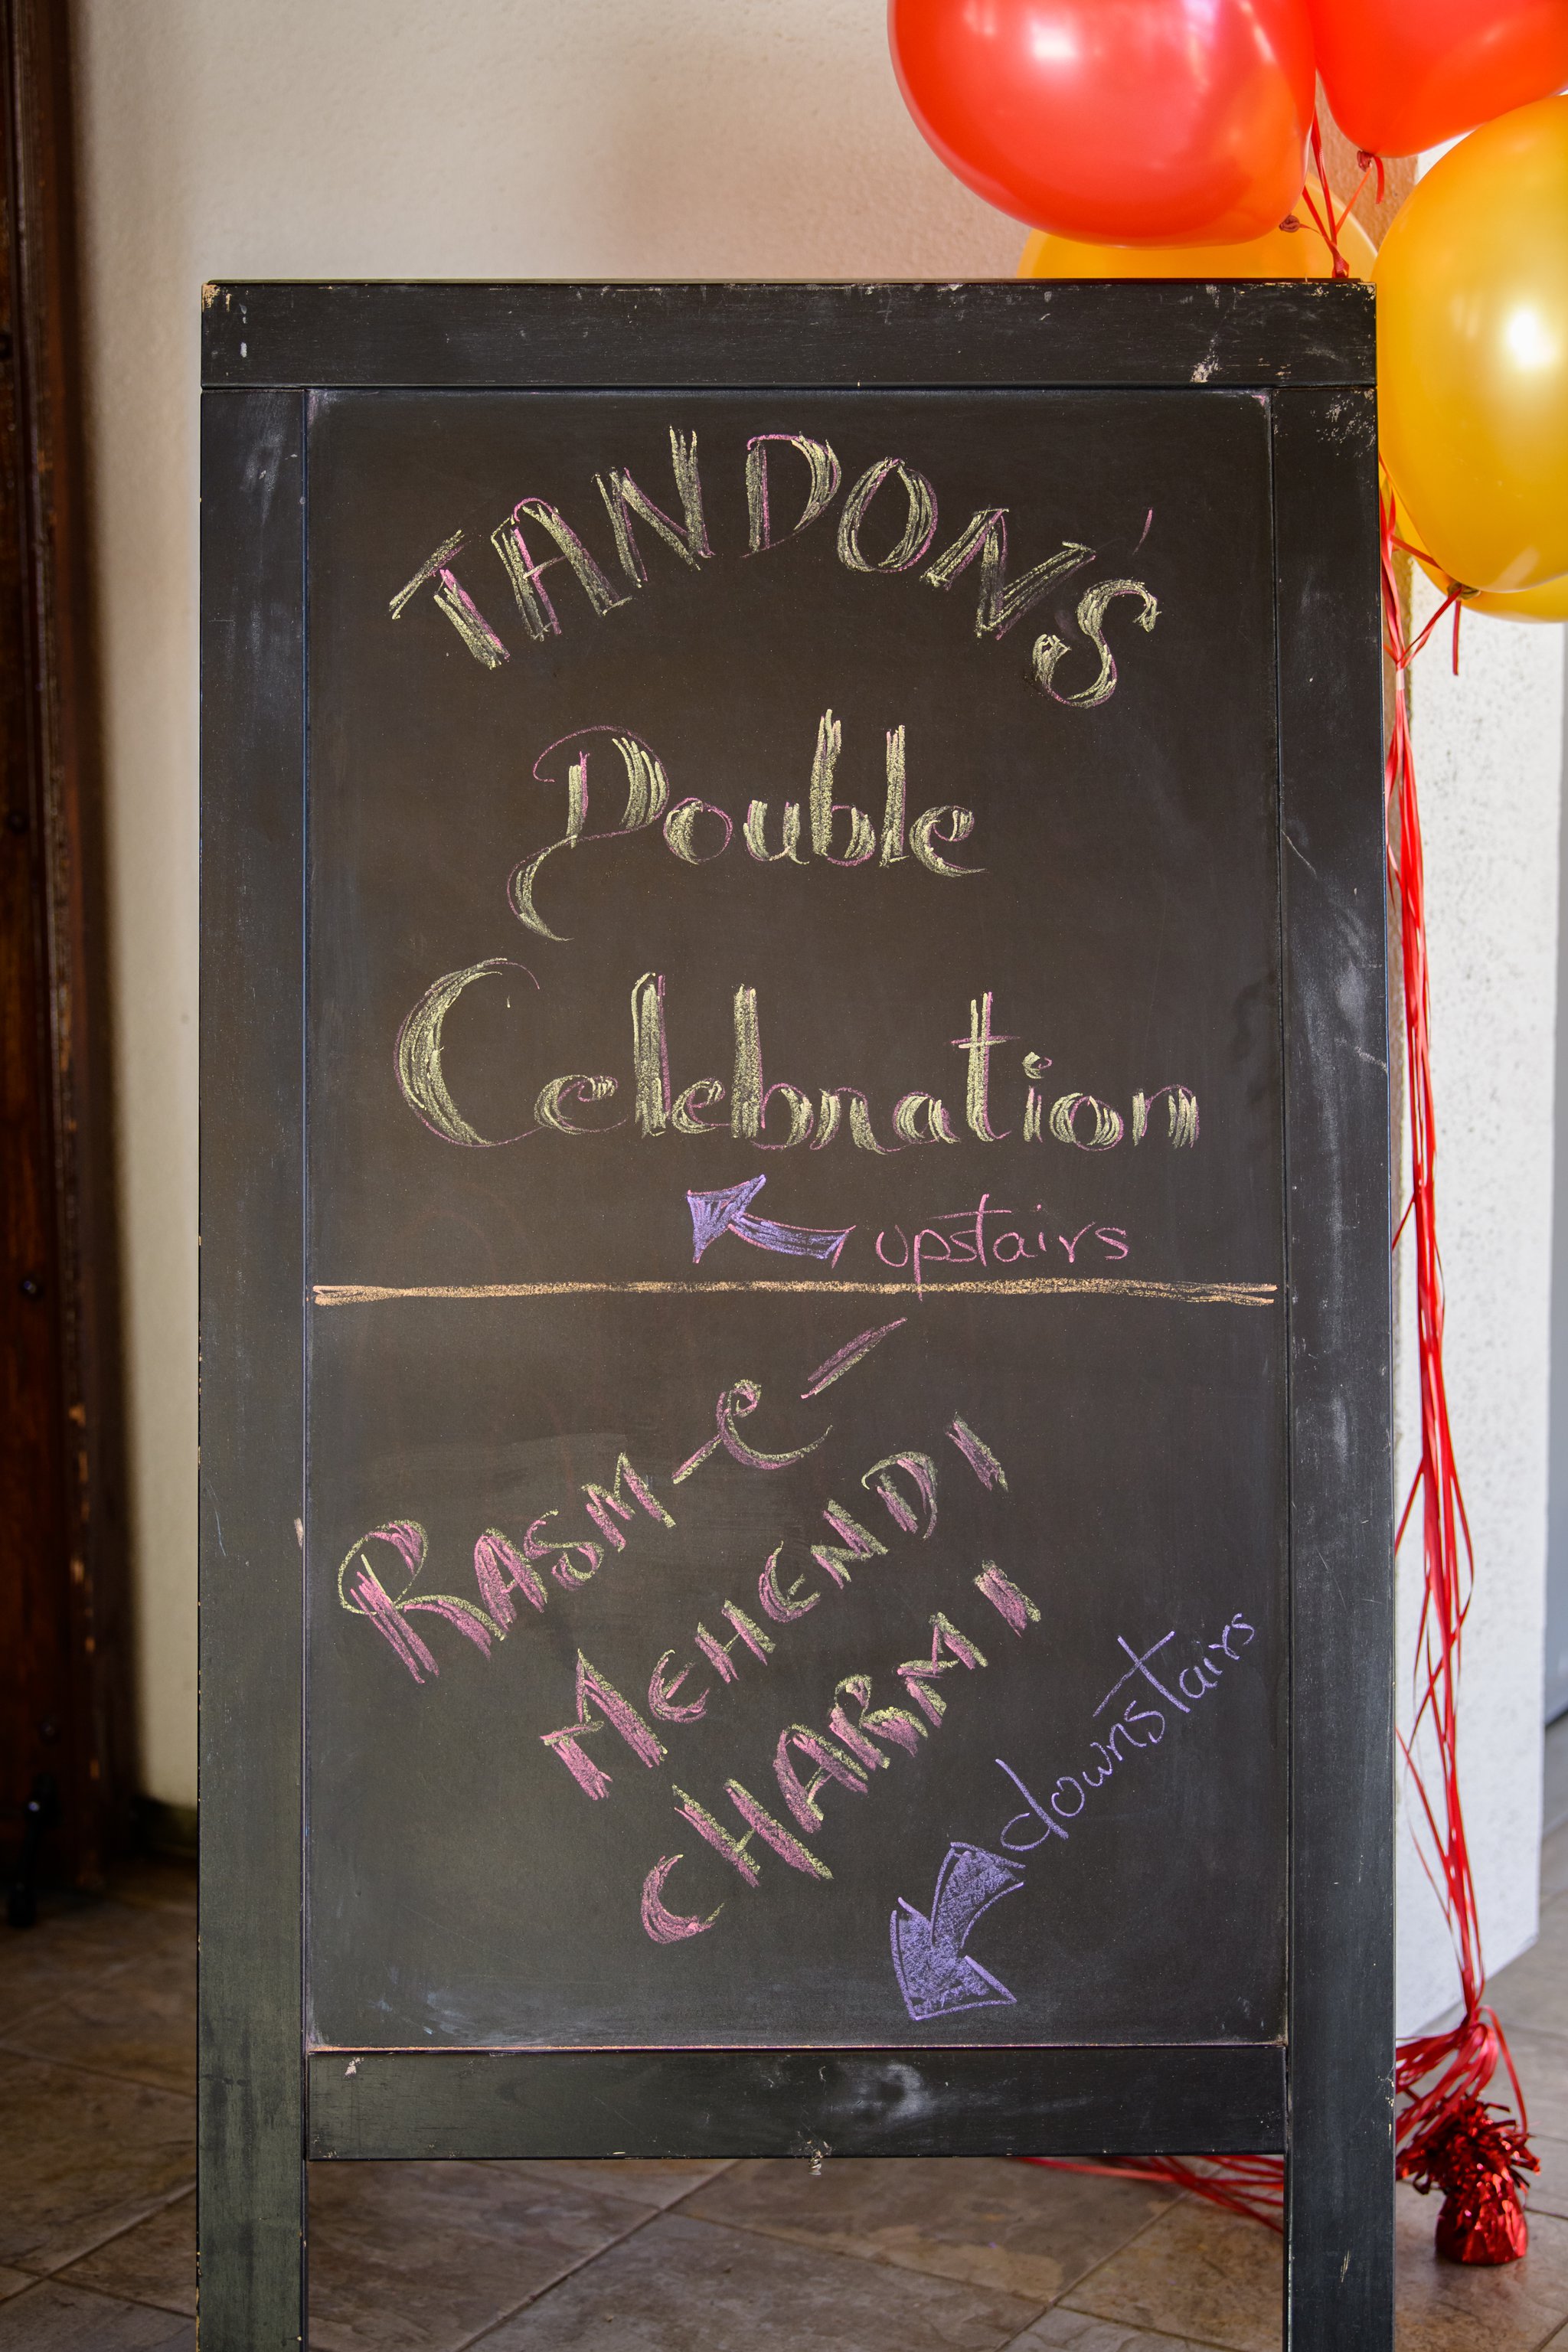 TANDON'S
Double
Celebration
upstairs
RASM-E-
MEHENDI
CHARMI
downstairs